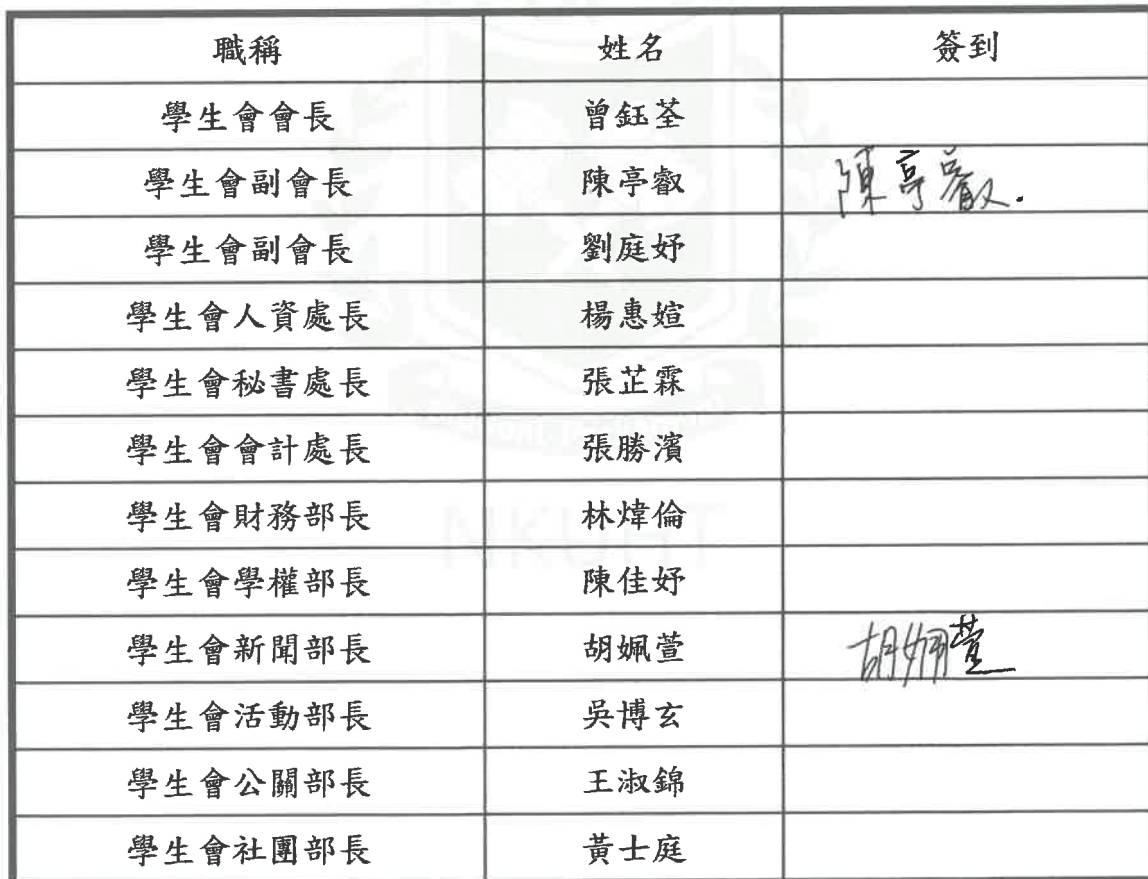 職稱 姓名 簽到
學生會會長 曾鈺荃
學生會副會長 陳亭叡 陳亭叡.
學生會副會長 劉庭妤
學生會人資處長 楊惠媗
學生會秘書處長 張芷霖
學生會會計處長 張勝濱
學生會財務部長 林煒倫
學生會學權部長 陳佳妤
學生會新聞部長 胡姵萱 胡姵萱
學生會活動部長 吳博玄
學生會公關部長 王淑錦
學生會社團部長 黃士庭
NKUHT